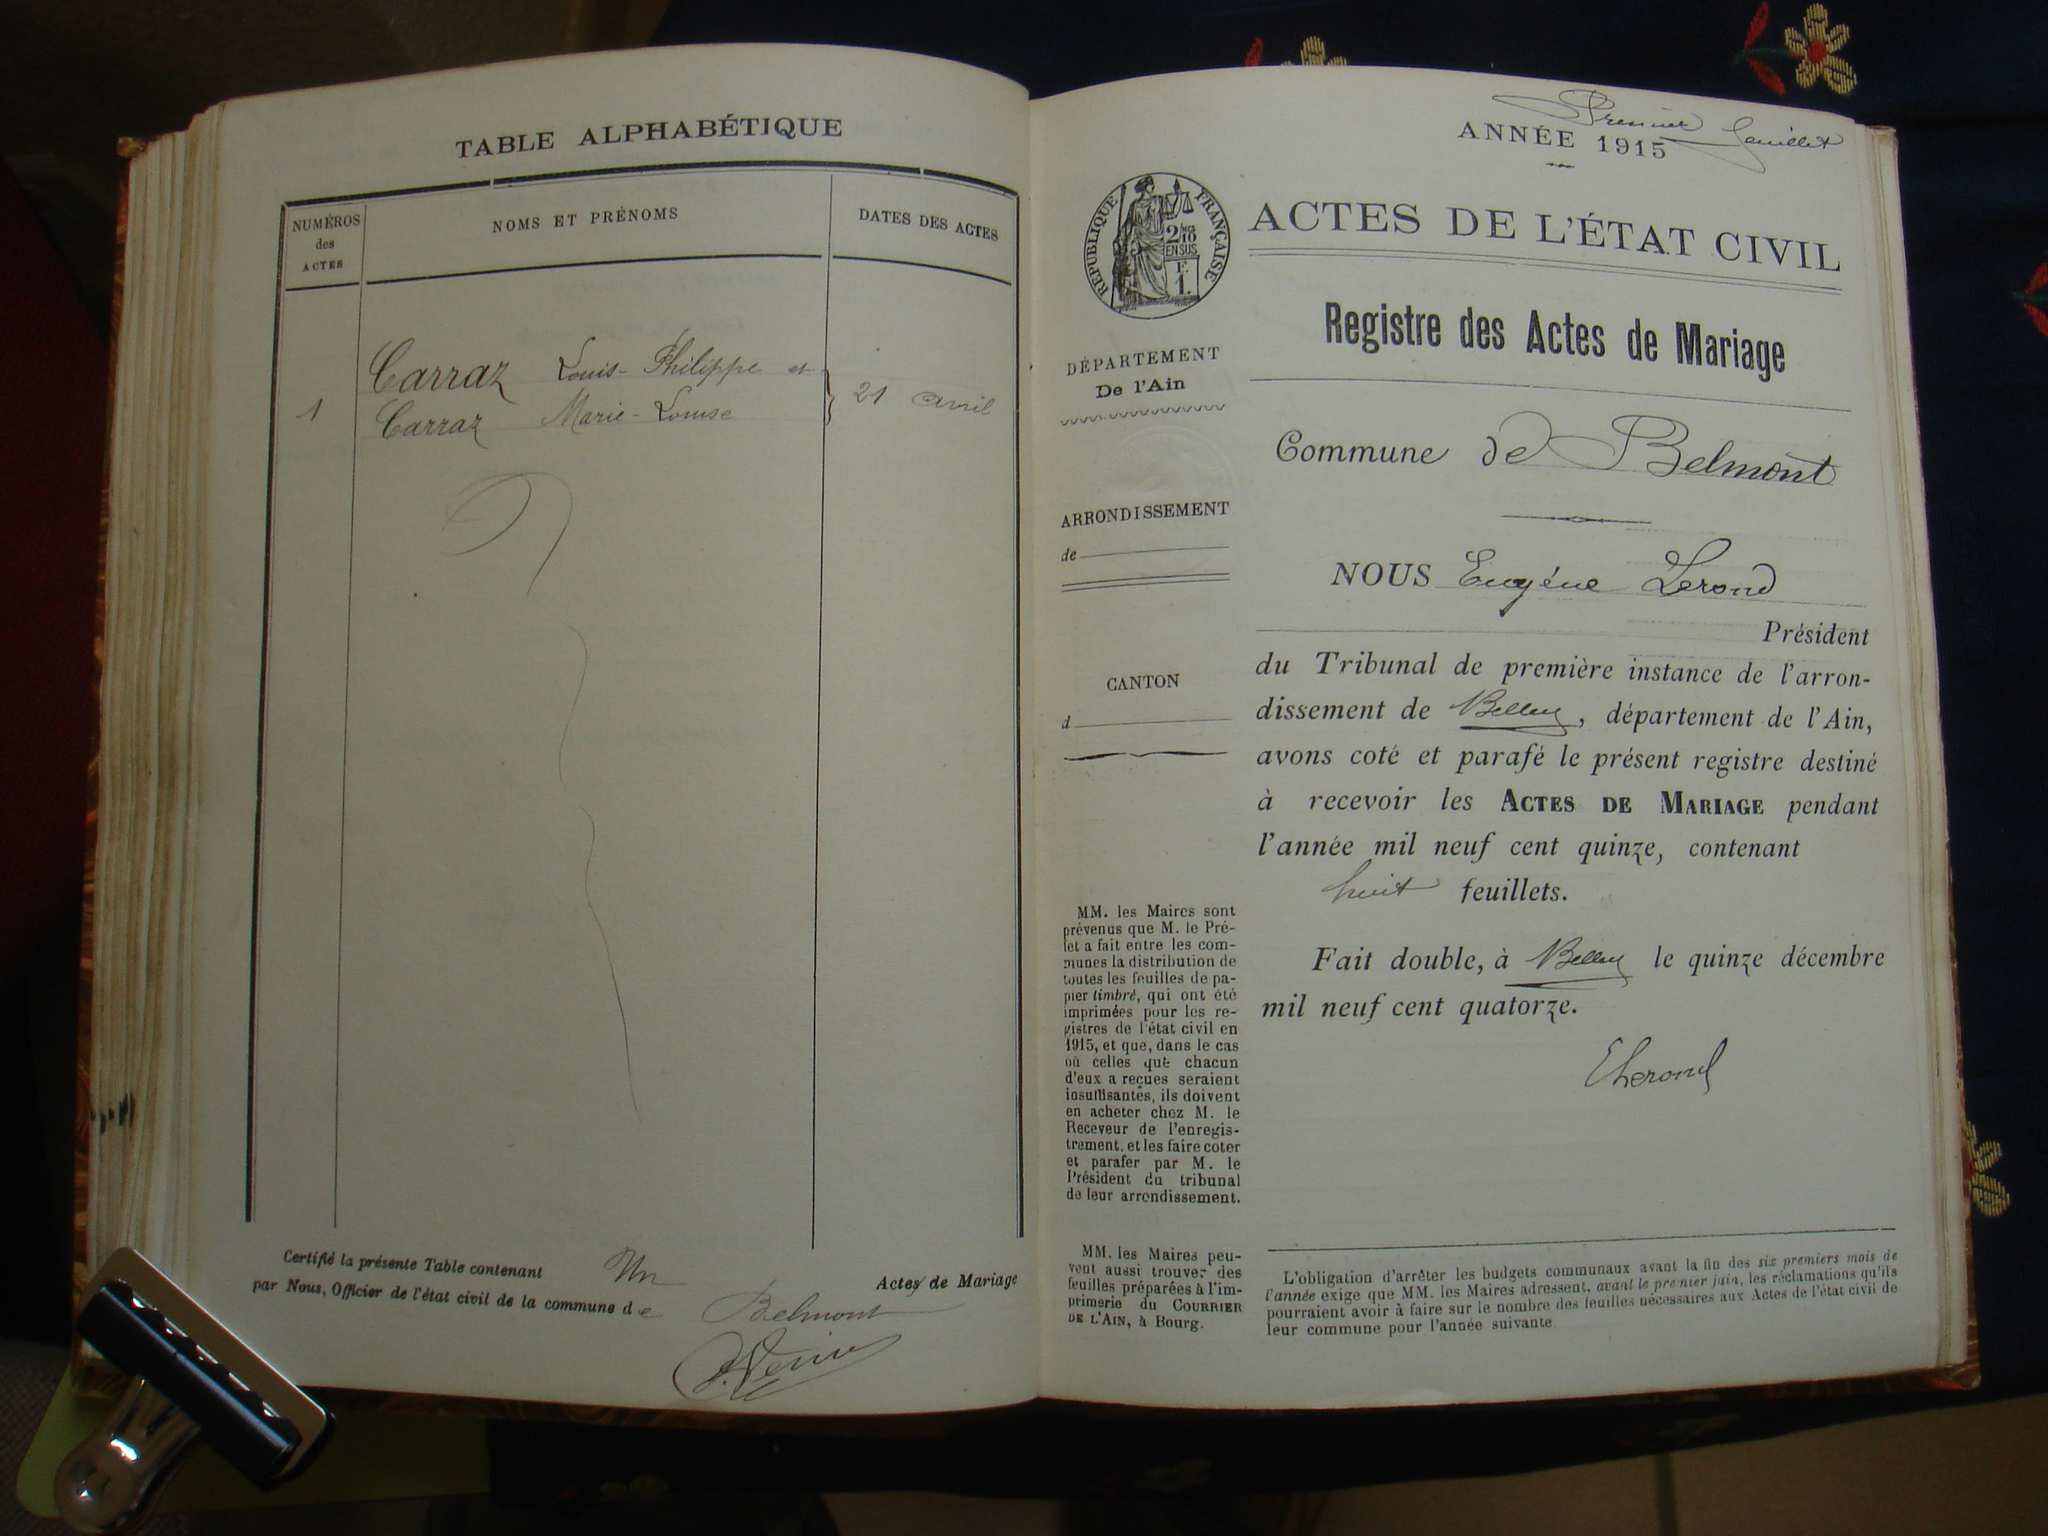 TABLE ALPHABÉTIQUE
NUMÉROS
des
ACTES
NOMS ET PRÉNOMS
DATES DES ACTES
Carraz Louis-Philippe et
1
Carraz Marie-Louise
21 avril
Certifié la présente Table contenant Un Actes de Mariage
par Nous, Officier de l'état civil de la commune de Belmont
Premier feuillet
ANNÉE 1915
RÉPUBLIQUE FRANÇAISE
2/10
EN SUS
F.
1.
ACTES DE L'ÉTAT CIVIL
Registre des Actes de Mariage
DÉPARTEMENT
De l'Ain
Commune de Belmont
ARRONDISSEMENT
de
NOUS Eugène Lerond
Président
CANTON
d
du Tribunal de première instance de l'arron-
dissement de Belley, département de l'Ain,
avons coté et parafé le présent registre destiné
à recevoir les ACTES DE MARIAGE pendant
l'année mil neuf cent quinze, contenant
huit feuillets.
Fait double, à Belley le quinze décembre
mil neuf cent quatorze.
ELerond
MM. les Maires sont
prévenus que M. le Pré-
fet a fait entre les com-
munes la distribution de
toutes les feuilles de pa-
pier timbré, qui ont été
imprimées pour les re-
gistres de l'état civil en
1915, et que, dans le cas
où celles que chacun
d'eux a reçues seraient
insuffisantes, ils doivent
en acheter chez M. le
Receveur de l'enregis-
trement, et les faire coter
et parafer par M. le
Président du tribunal
de leur arrondissement.
MM. les Maires peu-
vent aussi trouver des
feuilles préparées à l'im-
primerie du COURRIER
DE L'AIN, à Bourg.
L'obligation d'arrêter les budgets communaux avant la fin des six premiers mois de
l'année exige que MM. les Maires adressent, avant le premier juin, les réclamations qu'ils
pourraient avoir à faire sur le nombre des feuilles nécessaires aux Actes de l'état civil de
leur commune pour l'année suivante